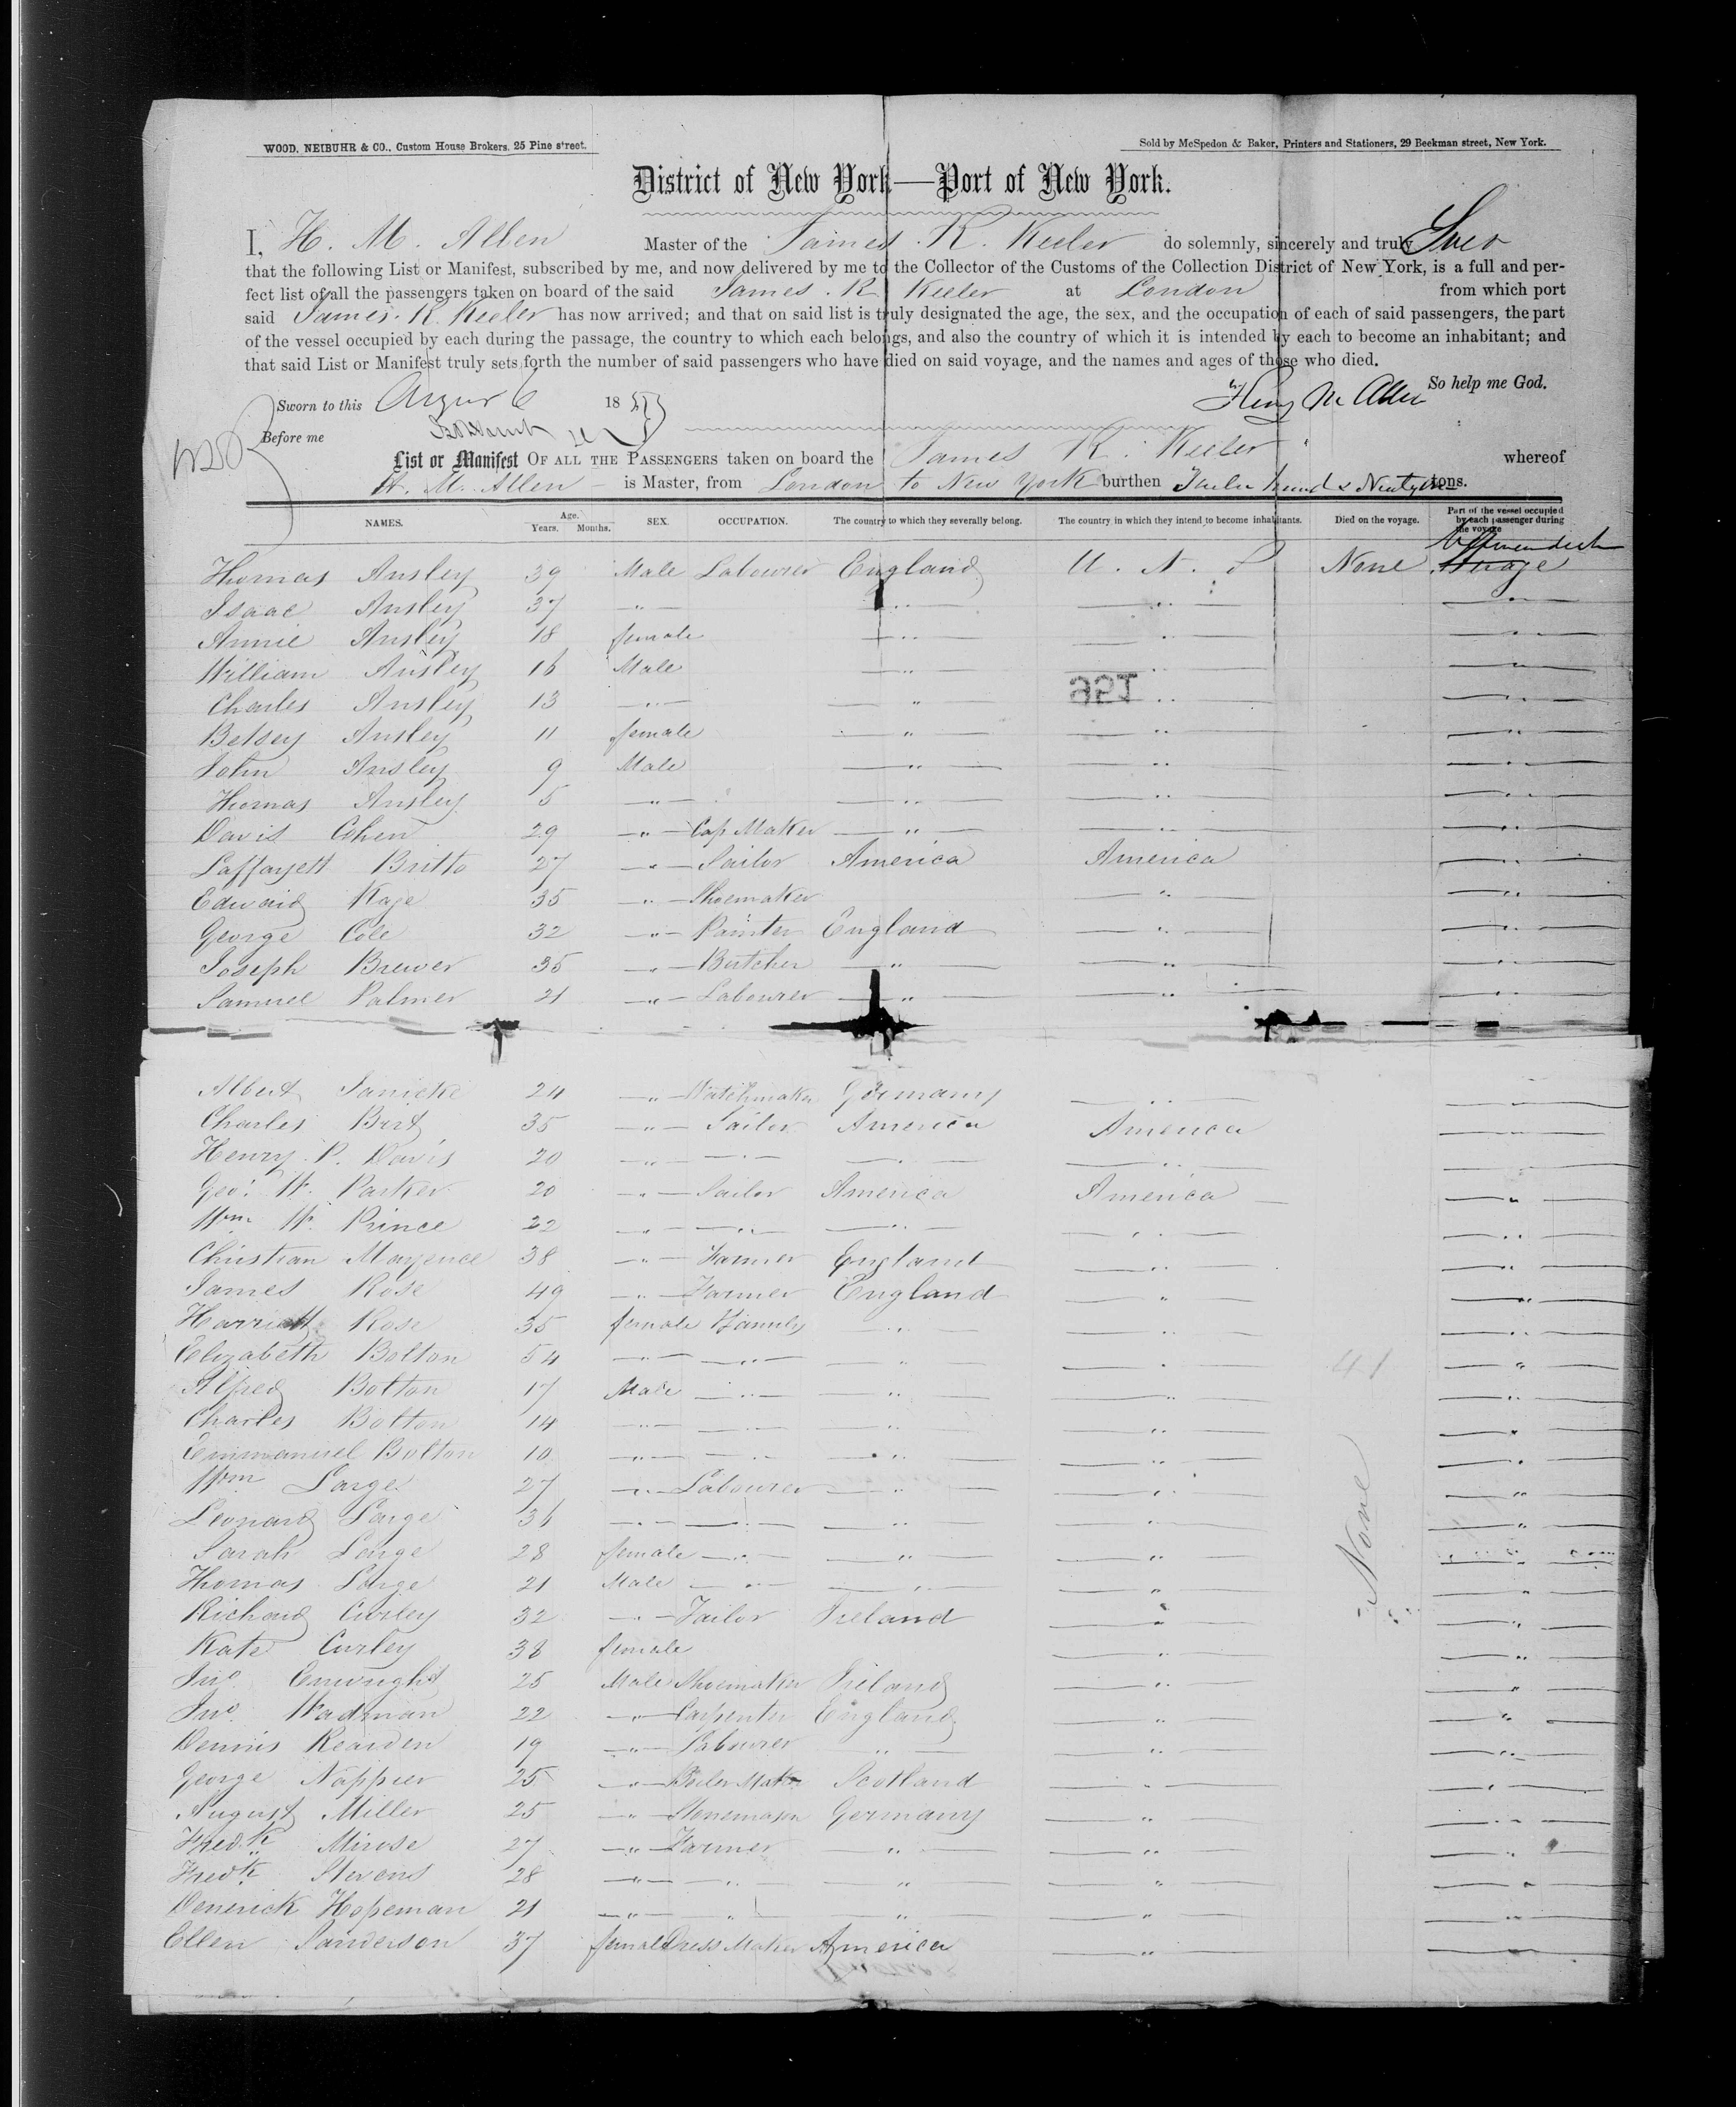 WOOD, NEIBUHR & CO., Custom House Brokers, 25 Pine street.
Sold by McSpedon & Baker, Printers and Stationers, 29 Beekman street, New York.
District of New York—Port of New York.
I, H. M. Allen Master of the James R. Keeler do solemnly, sincerely and truly Swear
that the following List or Manifest, subscribed by me, and now delivered by me to the Collector of the Customs of the Collection District of New York, is a full and per-
fect list of all the passengers taken on board of the said James R. Keeler at London from which port
said James R. Keeler has now arrived; and that on said list is truly designated the age, the sex, and the occupation of each of said passengers, the part
of the vessel occupied by each during the passage, the country to which each belongs, and also the country of which it is intended by each to become an inhabitant; and
that said List or Manifest truly sets forth the number of said passengers who have died on said voyage, and the names and ages of those who died.
So help me God.
Sworn to this August 6 18
Henry M Allen
Before me
List or Manifest OF ALL THE PASSENGERS taken on board the James R. Keeler whereof
H. M. Allen is Master, from London to New York burthen tons.
NAMES. Age. Years. Months. SEX. OCCUPATION. The country to which they severally belong. The country in which they intend to become inhabitants. Died on the voyage. Part of the vessel occupied by each passenger during the voyage
Thomas Ansley 39 Male Labourer England U. S. None Steerage
Isaac Ansley 37 " " " "
Annie Ansley 18 female " " "
William Ansley 16 Male " " "
Charles Ansley 13 " " " "
196
Betsey Ansley 11 female " " "
John Ansley 9 Male " " "
Thomas Ansley 5 " " " "
Davis Cohen 29 " Cap Maker " " "
Laffayett Britto 27 " Sailor America America "
Edward Kaje 35 " Shoemaker " "
George Cole 32 " Painter England " "
Joseph Brewer 35 " Butcher " " "
Samuel Palmer 21 " Labourer " " "
Albert Janicke 24 " Watchmaker Germany " "
Charles Birt 35 " Sailor America America "
Henry P. Davis 20 " " " " "
Geo. W. Parker 20 " Sailor America America "
Wm W. Prince 22 " " " " "
Christian Mayence 38 " Farmer England " "
James Rose 49 " Farmer England " "
Harriett Rose 35 female Family " " "
Elizabeth Bolton 54 " " " " "
41
Alfred Bolton 17 Male " " " "
Charles Bolton 14 " " " " "
Emmanuel Bolton 10 " " " " "
Wm Large 27 " Labourer " " "
Leonard Large 36 " " " " "
Sarah Large 28 female " " " None "
Thomas Large 21 Male " " " "
Richard Curley 32 " Tailor Ireland " "
Kate Curley 38 female " "
Jno. Enwright 25 Male Shoemaker Ireland " "
Jno. Wadman 22 " Carpenter England " "
Dennis Rearden 19 " Labourer " " "
George Nappier 25 " Boiler Maker Scotland " "
August Miller 25 " Stonemason Germany " "
Fredk Mirose 27 " Farmer " " "
Fredk Stevens 28 " " " " "
Denerick Hopeman 21 " " " " "
Ellen Sanderson 37 female Dress Maker America " "